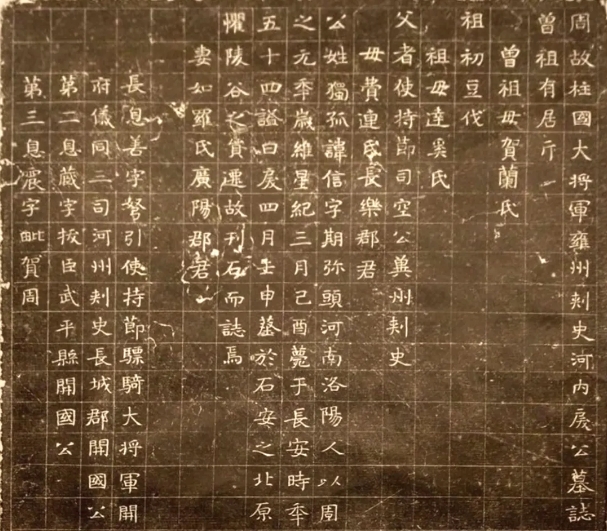 周故柱國大將軍雍州刾史河內戾公墓誌
曾祖有居斤
曾祖母賀蘭氏
祖初豆伐
祖母達奚氏
父者使持節司空公兾州刾史
母費連氏長樂郡君
公姓獨孤諱信字期弥頭河南洛陽人以周
之元秊歲維星紀三月己酉薨于長安時秊
五十四諡曰戾四月壬申墓於石安之北原
懼陵谷之貿遷故刊石而誌焉
妻如羅氏廣陽郡君
長息善字弩引使持節驃騎大將軍開
府儀同三司河州刾史長城郡開國公
第二息藏字拔臣武平縣開國公
第三息震字毗賀周